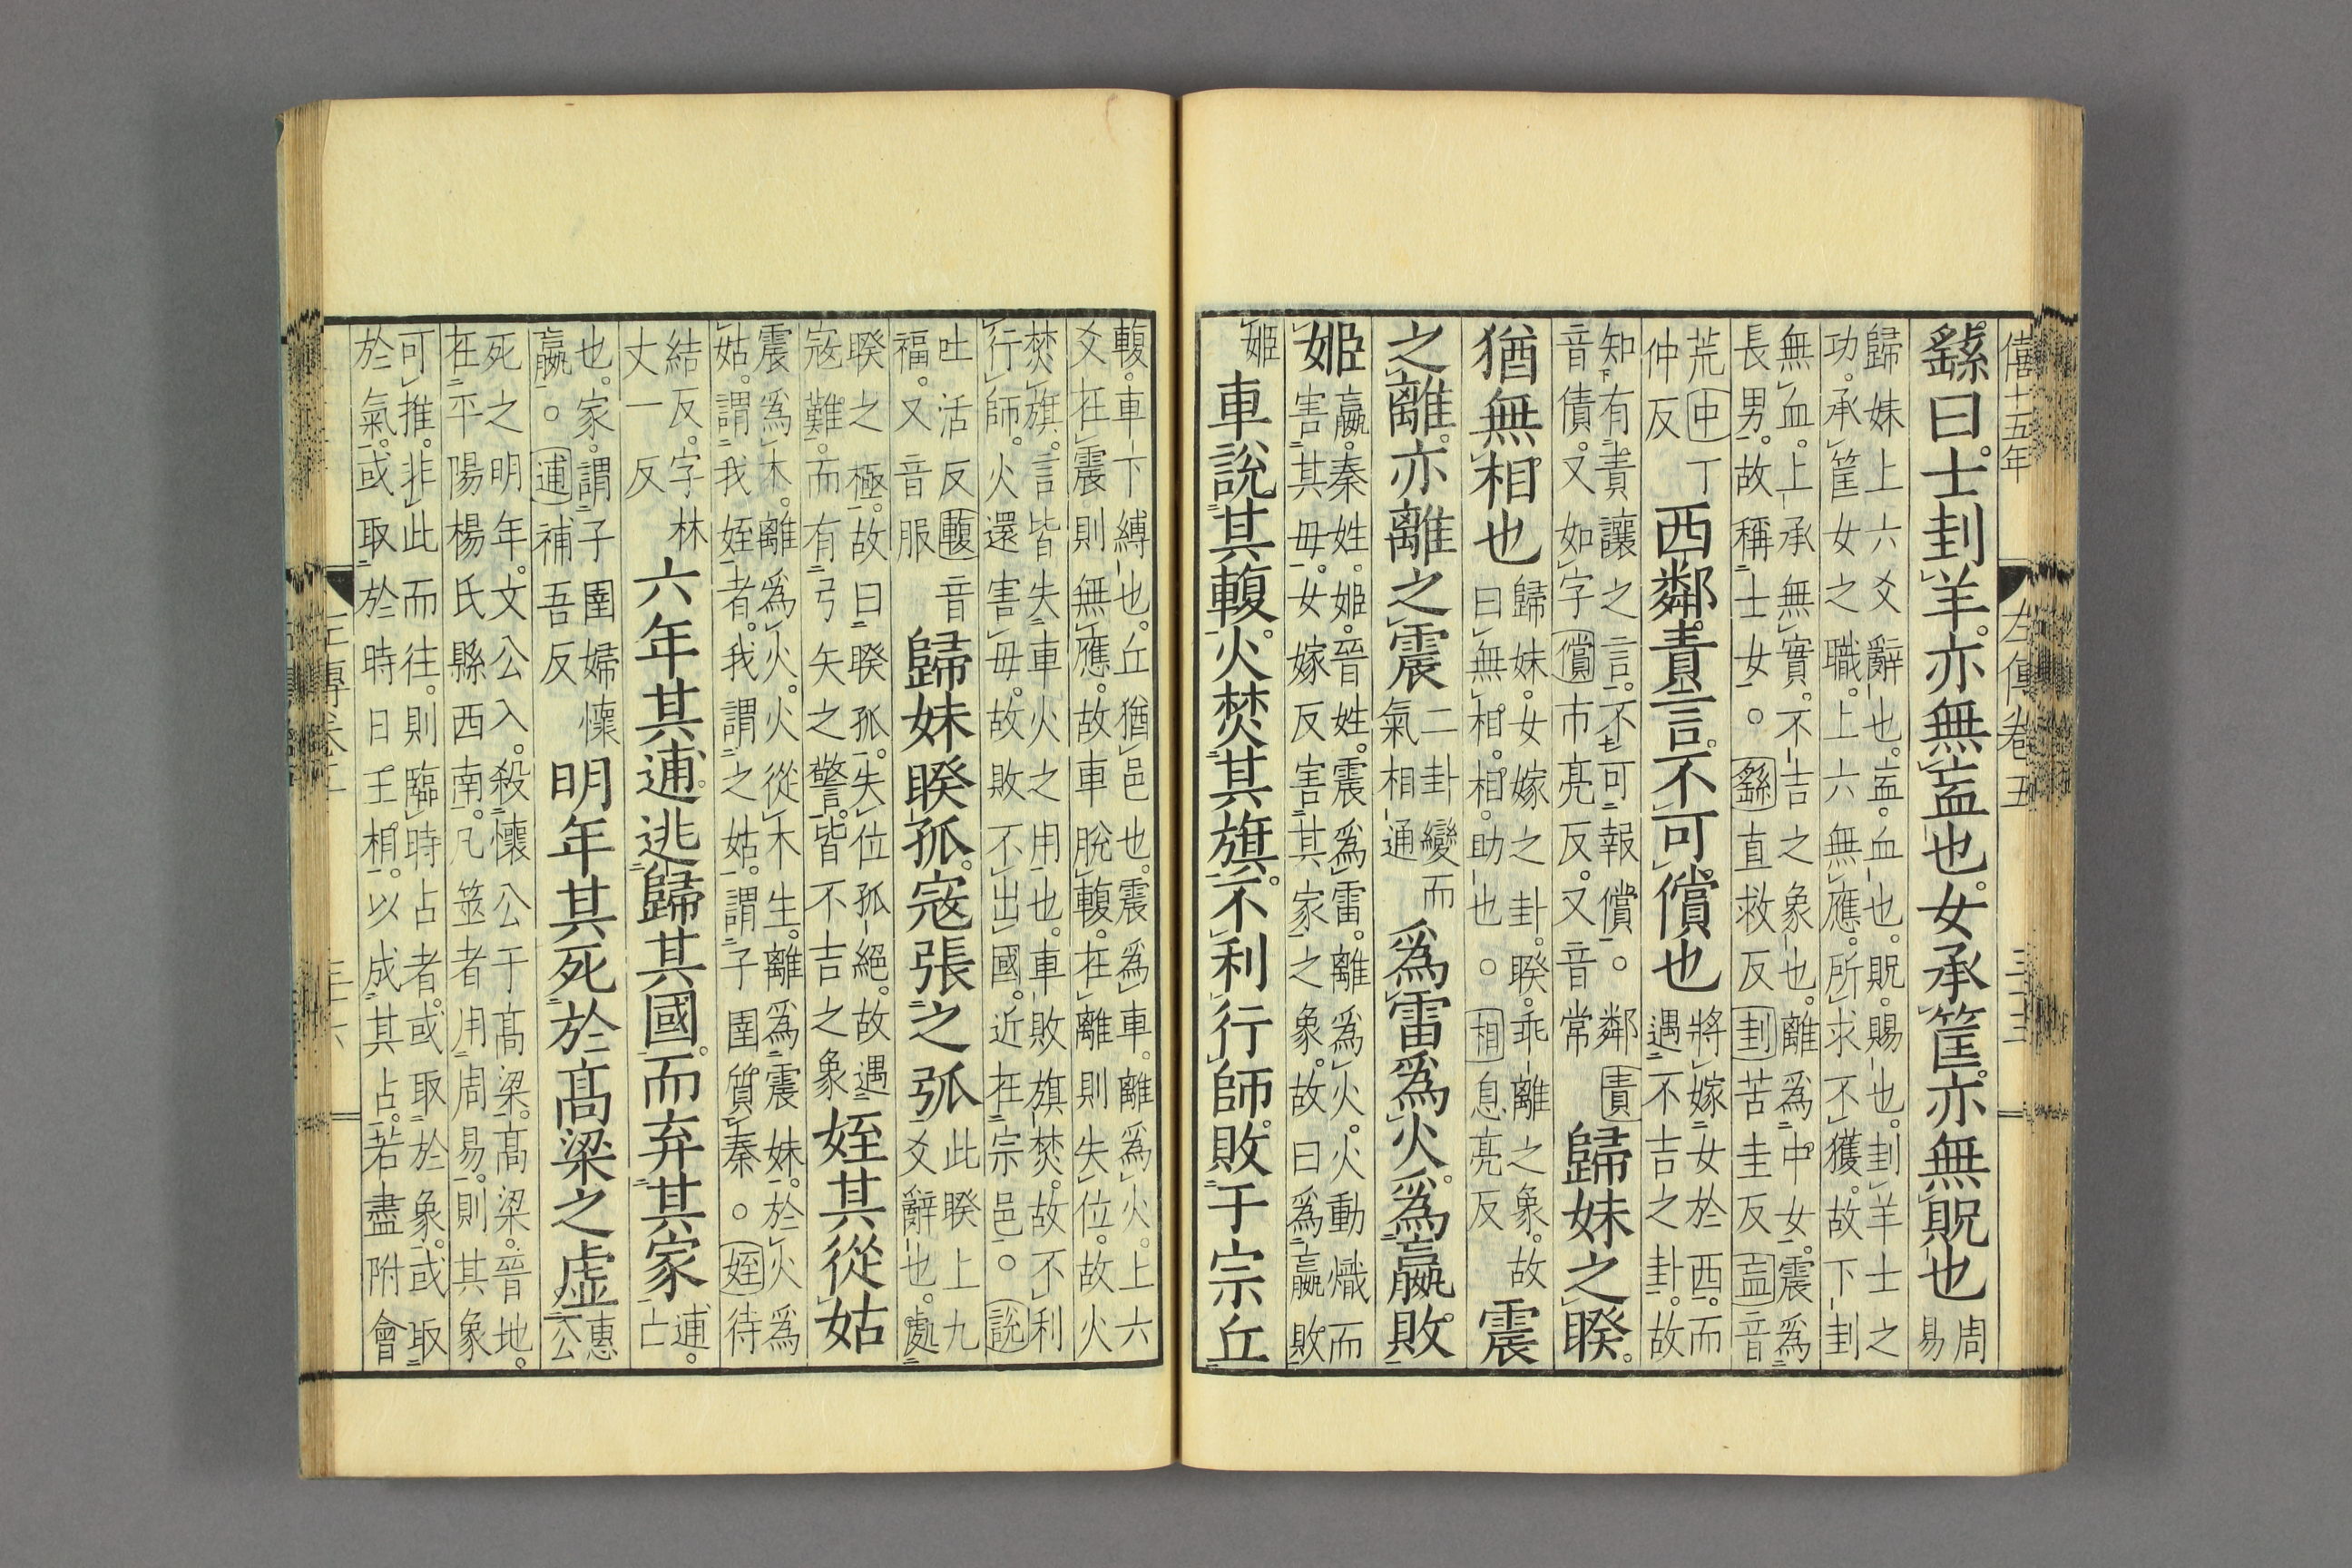 僖十五年　左傳卷五　三十三
繇曰。士刲羊。亦無衁也。女承筐。亦無貺也周
易
歸妹上六爻辭也。衁。血也。貺。賜也。刲羊士之
功。承筐女之職。上六無應。所求不獲。故下刲
無血。上承無實。不吉之象也。離爲中女。震爲
長男。故稱士女。○繇直救反刲苦圭反衁音
荒中丁
仲反
西鄰責言。不可償也
將嫁女於西。而
遇不吉之卦。故
知有責讓之言。不可報償。○鄰責
音債。又如字償市亮反。又音常
歸妹之睽。
猶無相也
歸妹。女嫁之卦。睽。乖離之象。故
曰無相。相。助也。○相息亮反
震
之離。亦離之震
二卦變而
氣相通
爲雷爲火。爲嬴敗
姬
嬴。秦姓。姬。晉姓。震爲雷。離爲火。火動熾而
害其母。女嫁反害其家之象。故曰爲嬴敗
姬
車說其輹。火焚其旗。不利行師。敗于宗丘
輹。車下縛也。丘猶邑也。震爲車。離爲火。上六
爻在震則無應。故車脫輹。在離則失位。故火
焚旗。言皆失車火之用也。車敗旗焚。故不利
行師。火還害母。故敗不出國。近在宗邑。○說
吐活反輹音
福。又音服
歸妹睽孤。寇張之弧
此睽上九
爻辭也。處
睽之極。故曰睽孤。失位孤絕。故遇
寇難。而有弓矢之警。皆不吉之象
姪其從姑
震爲木。離爲火。火從木生。離爲震妹。於火爲
姑。謂我姪者。我謂之姑。謂子圉質秦。○姪待
結反。字林
丈一反
六年其逋。逃歸其國。而弃其家
逋。
亡
也。家。謂子圉婦懷
嬴。○逋補吾反
明年其死於高梁之虛
惠
公
死之明年。文公入。殺懷公于高梁。高梁。晉地。
在平陽楊氏縣西南。凡筮者用周易。則其象
可推。非此而往。則臨時占者。或取於象。或取
於氣。或取於時日王相。以成其占。若盡附會